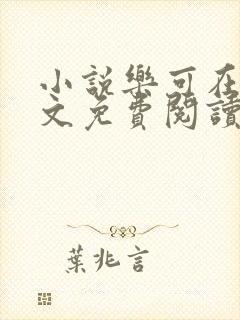 小說樂可在
文免費閱讀
葉兆言